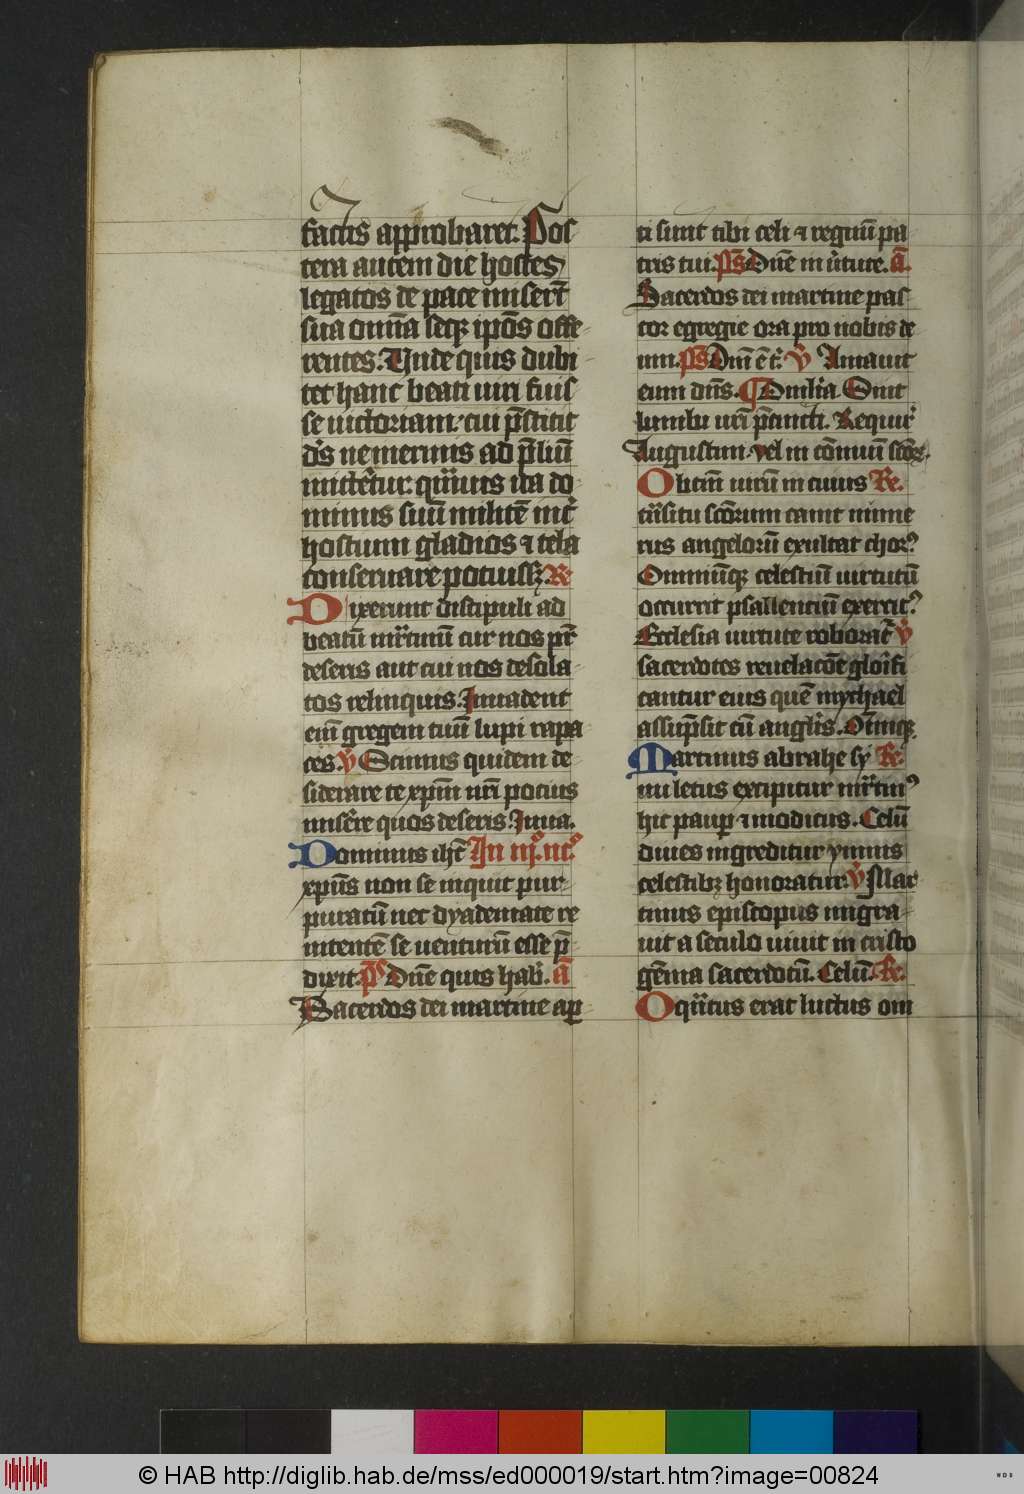 factis approbaret. Pos
tera autem die hostes
legatos de pace miserūt
sua omīa seq₃ ipōs offe-
rentes. Unde quis dubi-
tet hanc beati viri fuis
se victoriam. cui p̄stitit
dn̄s ne inermis ad p̄liū
mitterēt᷑. quāuis ita do-
minus suū militē int̓
hostium gladios ⁊ tela
conseruare potuiss₃. Re
Dixerunt discipuli ad
beatū mr̄tinū cur nos pr̄
deseris aut cui nos desola-
tos relinquis. Inuadent
eīn̄ gregem tuū lupi rapa
ces. v̓ Scimus quidem de-
siderare te xp̄m nr̄i pocius
miser̄e quos deseris. Inua.
Dominus ih̄c In iij. nt̓.
xp̄us non se inquit pur-
puratū nec dyademate re
nitentē se uenturū esse p̄-
dixit. ps̄ Dn̄e quis hab̓i. ā
Sacerdos dei martine ap-
ti sunt tibi celi ⁊ regnū pa
tris tui. ps̄ Dn̄e in v̓tute. ā.
Sacerdos dei martine pas
tor egregie ora pro nobis de
um. ps̄ Dn̄i ē t̓. v̓ Amauit
eum dn̄s. Omilia. Sint
lumbi vr̄i p̄cincti. Require
Augustini vel in cōmuni scōꝝ.
O beatū virū in cuius Re.
trāsitu scōrum canit nume
rus angelorū exultat chor᷒
Omniūq₃ celestiū virtutū
occurrit psallentiū exercit᷒
Ecclesia virtute roborat᷑ v̓
sacerdotes reuelacōe glorifi
cantur eius quē mychael
assūpsit cū angel̓is. Omīuq₃
Martinus abrahe sy̓ Re.
nu letus excipitur mr̄tin᷒
hic paup̄ ⁊ modicus. Celū
diues ingreditur ymnis
celestib₃ honoratur. v̓ Mar
tinus episcopus migra-
uit a seculo viuit in cristo
gēma sacerdotū. Celū. Re.
O quātus erat luctus om
© HAB http://diglib.hab.de/mss/ed000019/start.htm?image=00824